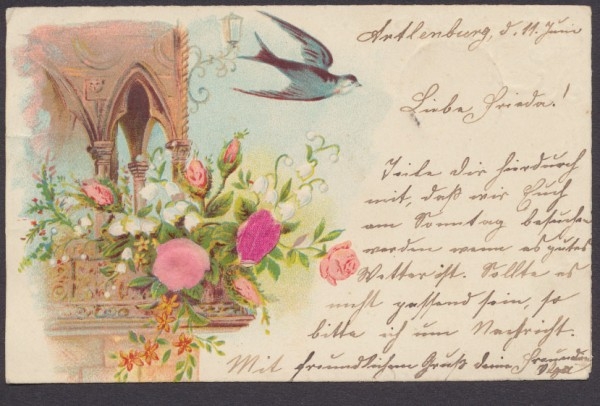 Artlenburg, d. 11. Juni
Liebe Frieda!
Teile dir hierdurch
mit, daß wir Euch
am Sonntag besuchen
werden wenn es gutes
Wetter ist. Sollte es
nicht passend sein, so
bitte ich um Nachricht.
Mit freundlichem Gruß deine Freundin